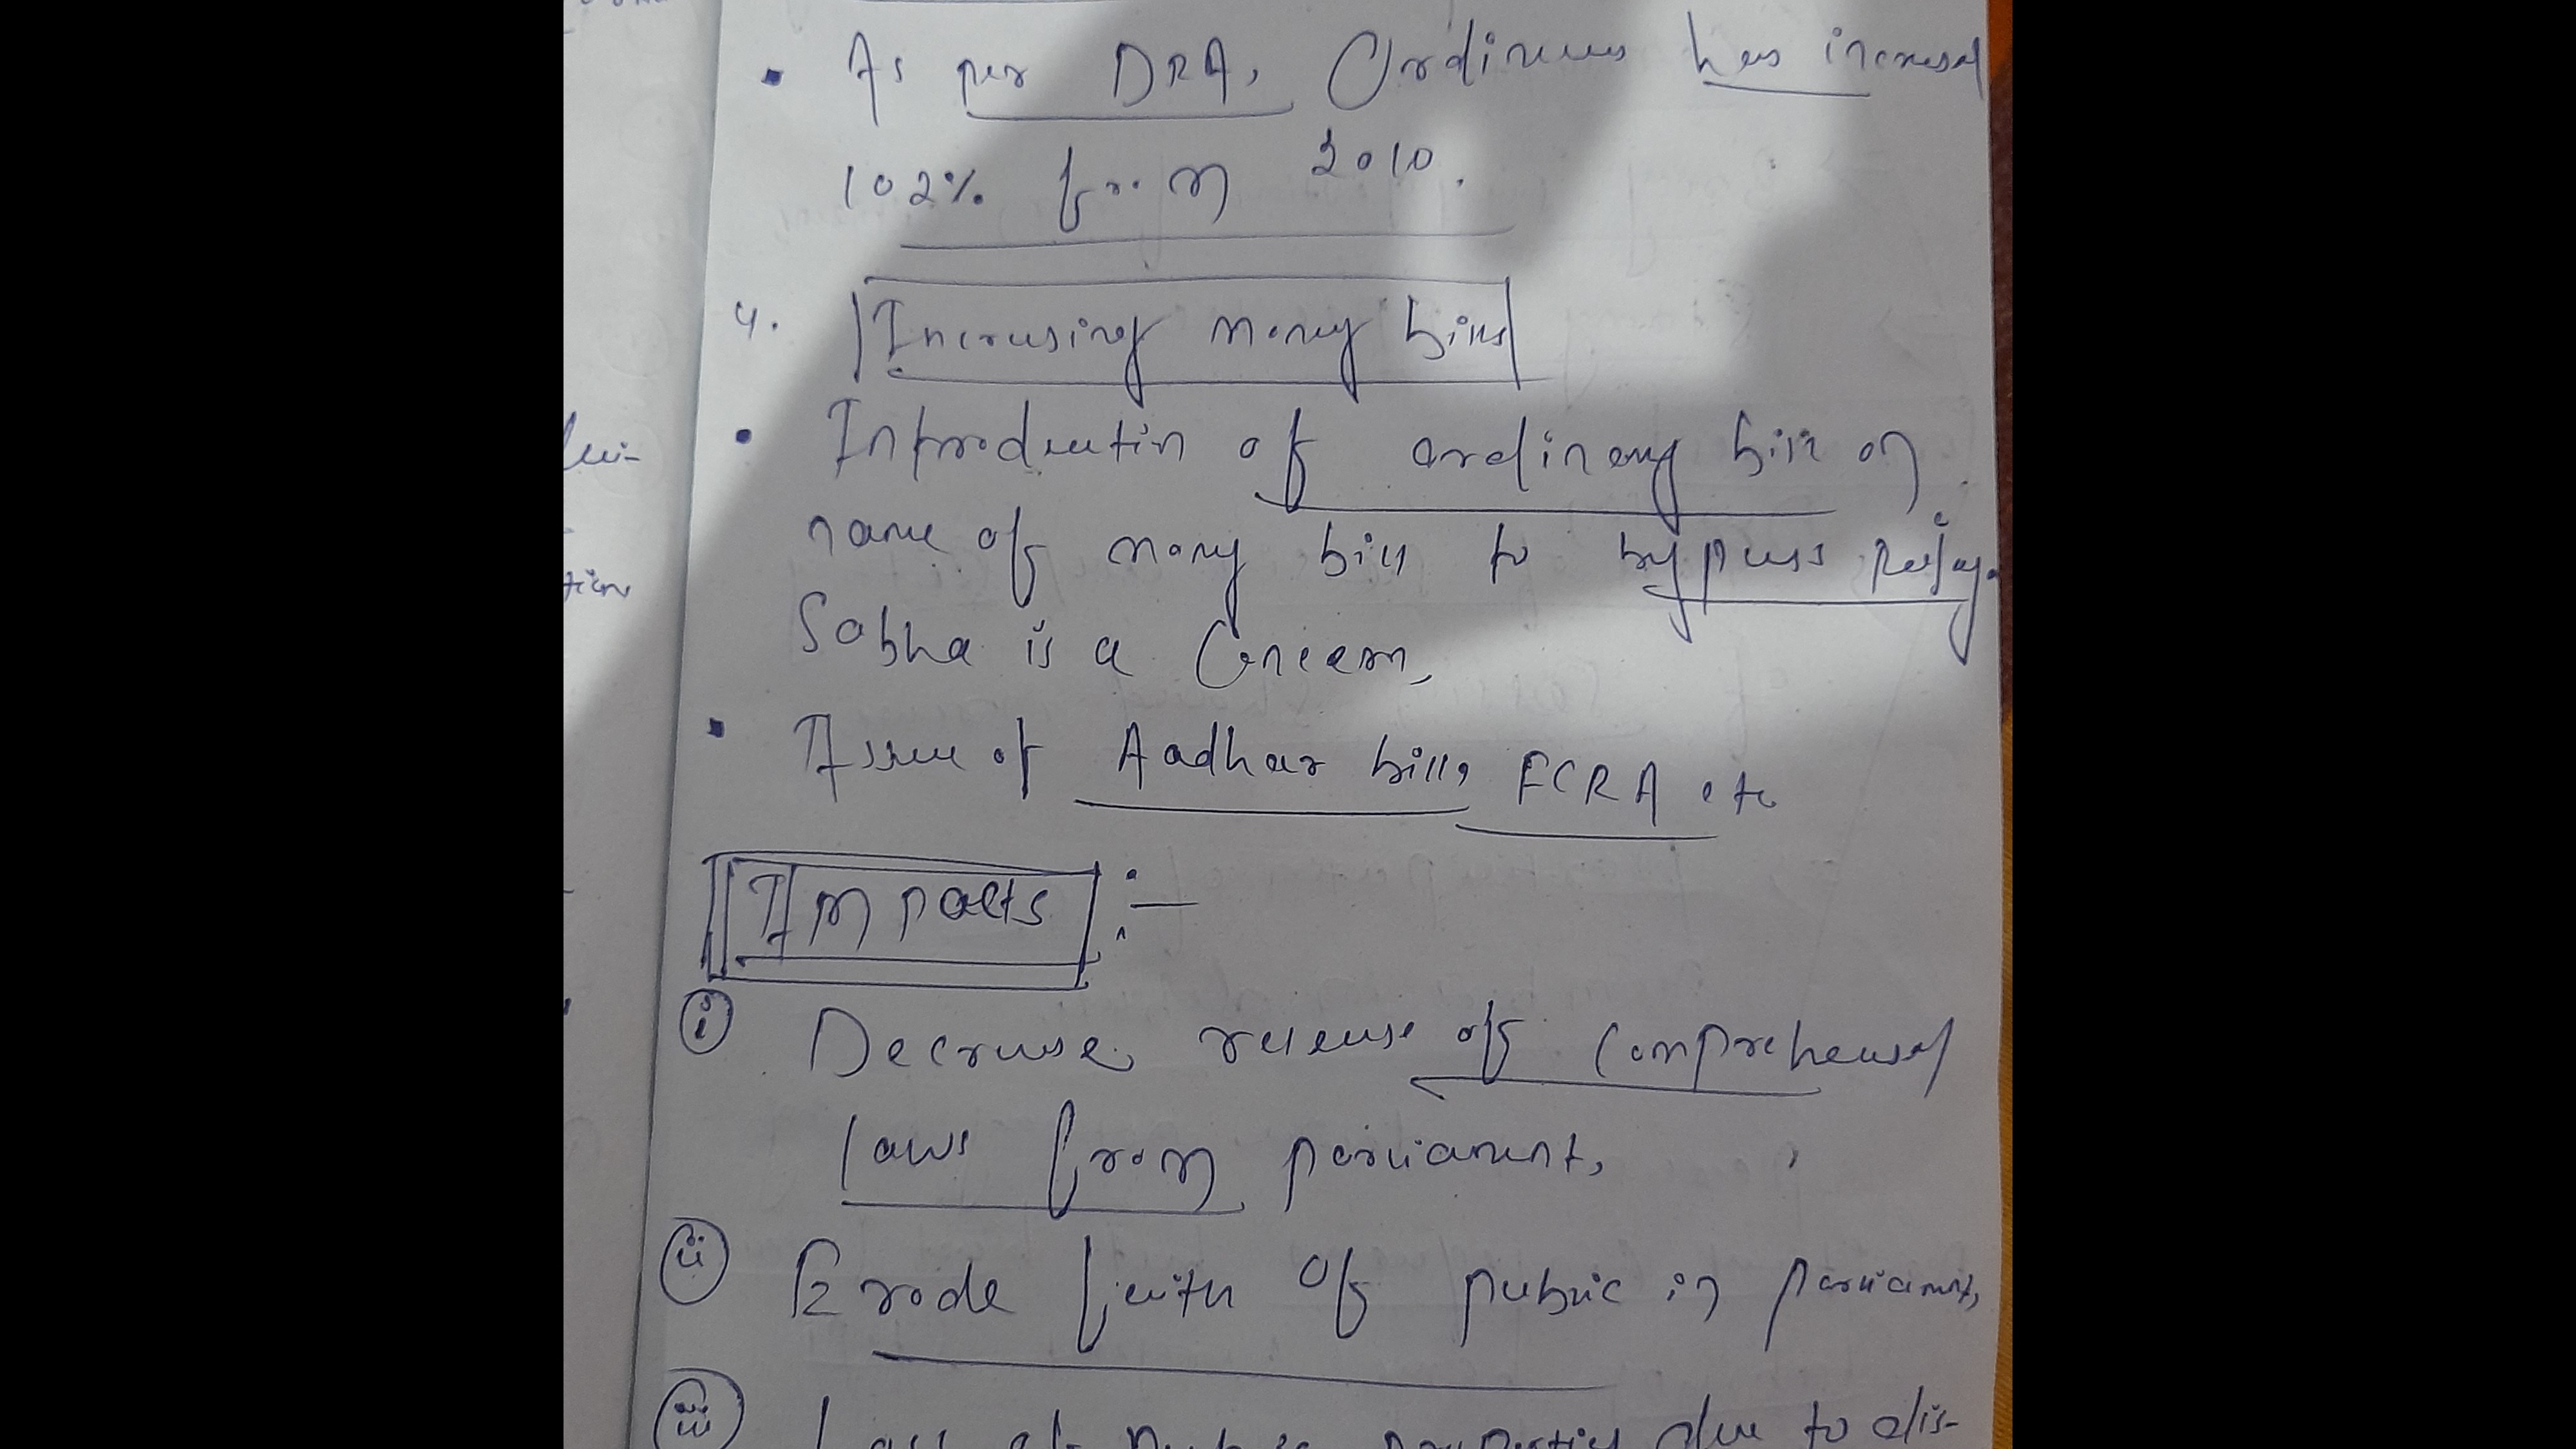 As per DRA, Ordinances has increased
102% from 2010.
4. Increasing money bills
Introduction of ordinary bill on
name of money bill to bypass Rajya
Sabha is a Concern,
Issue of Aadhar bill, FCRA etc
Impacts :-
i Decrease release of comprehensed
laws from parliament,
ii Erode faith of public in parliament,
iii Loss of public properties due to dis-
tion